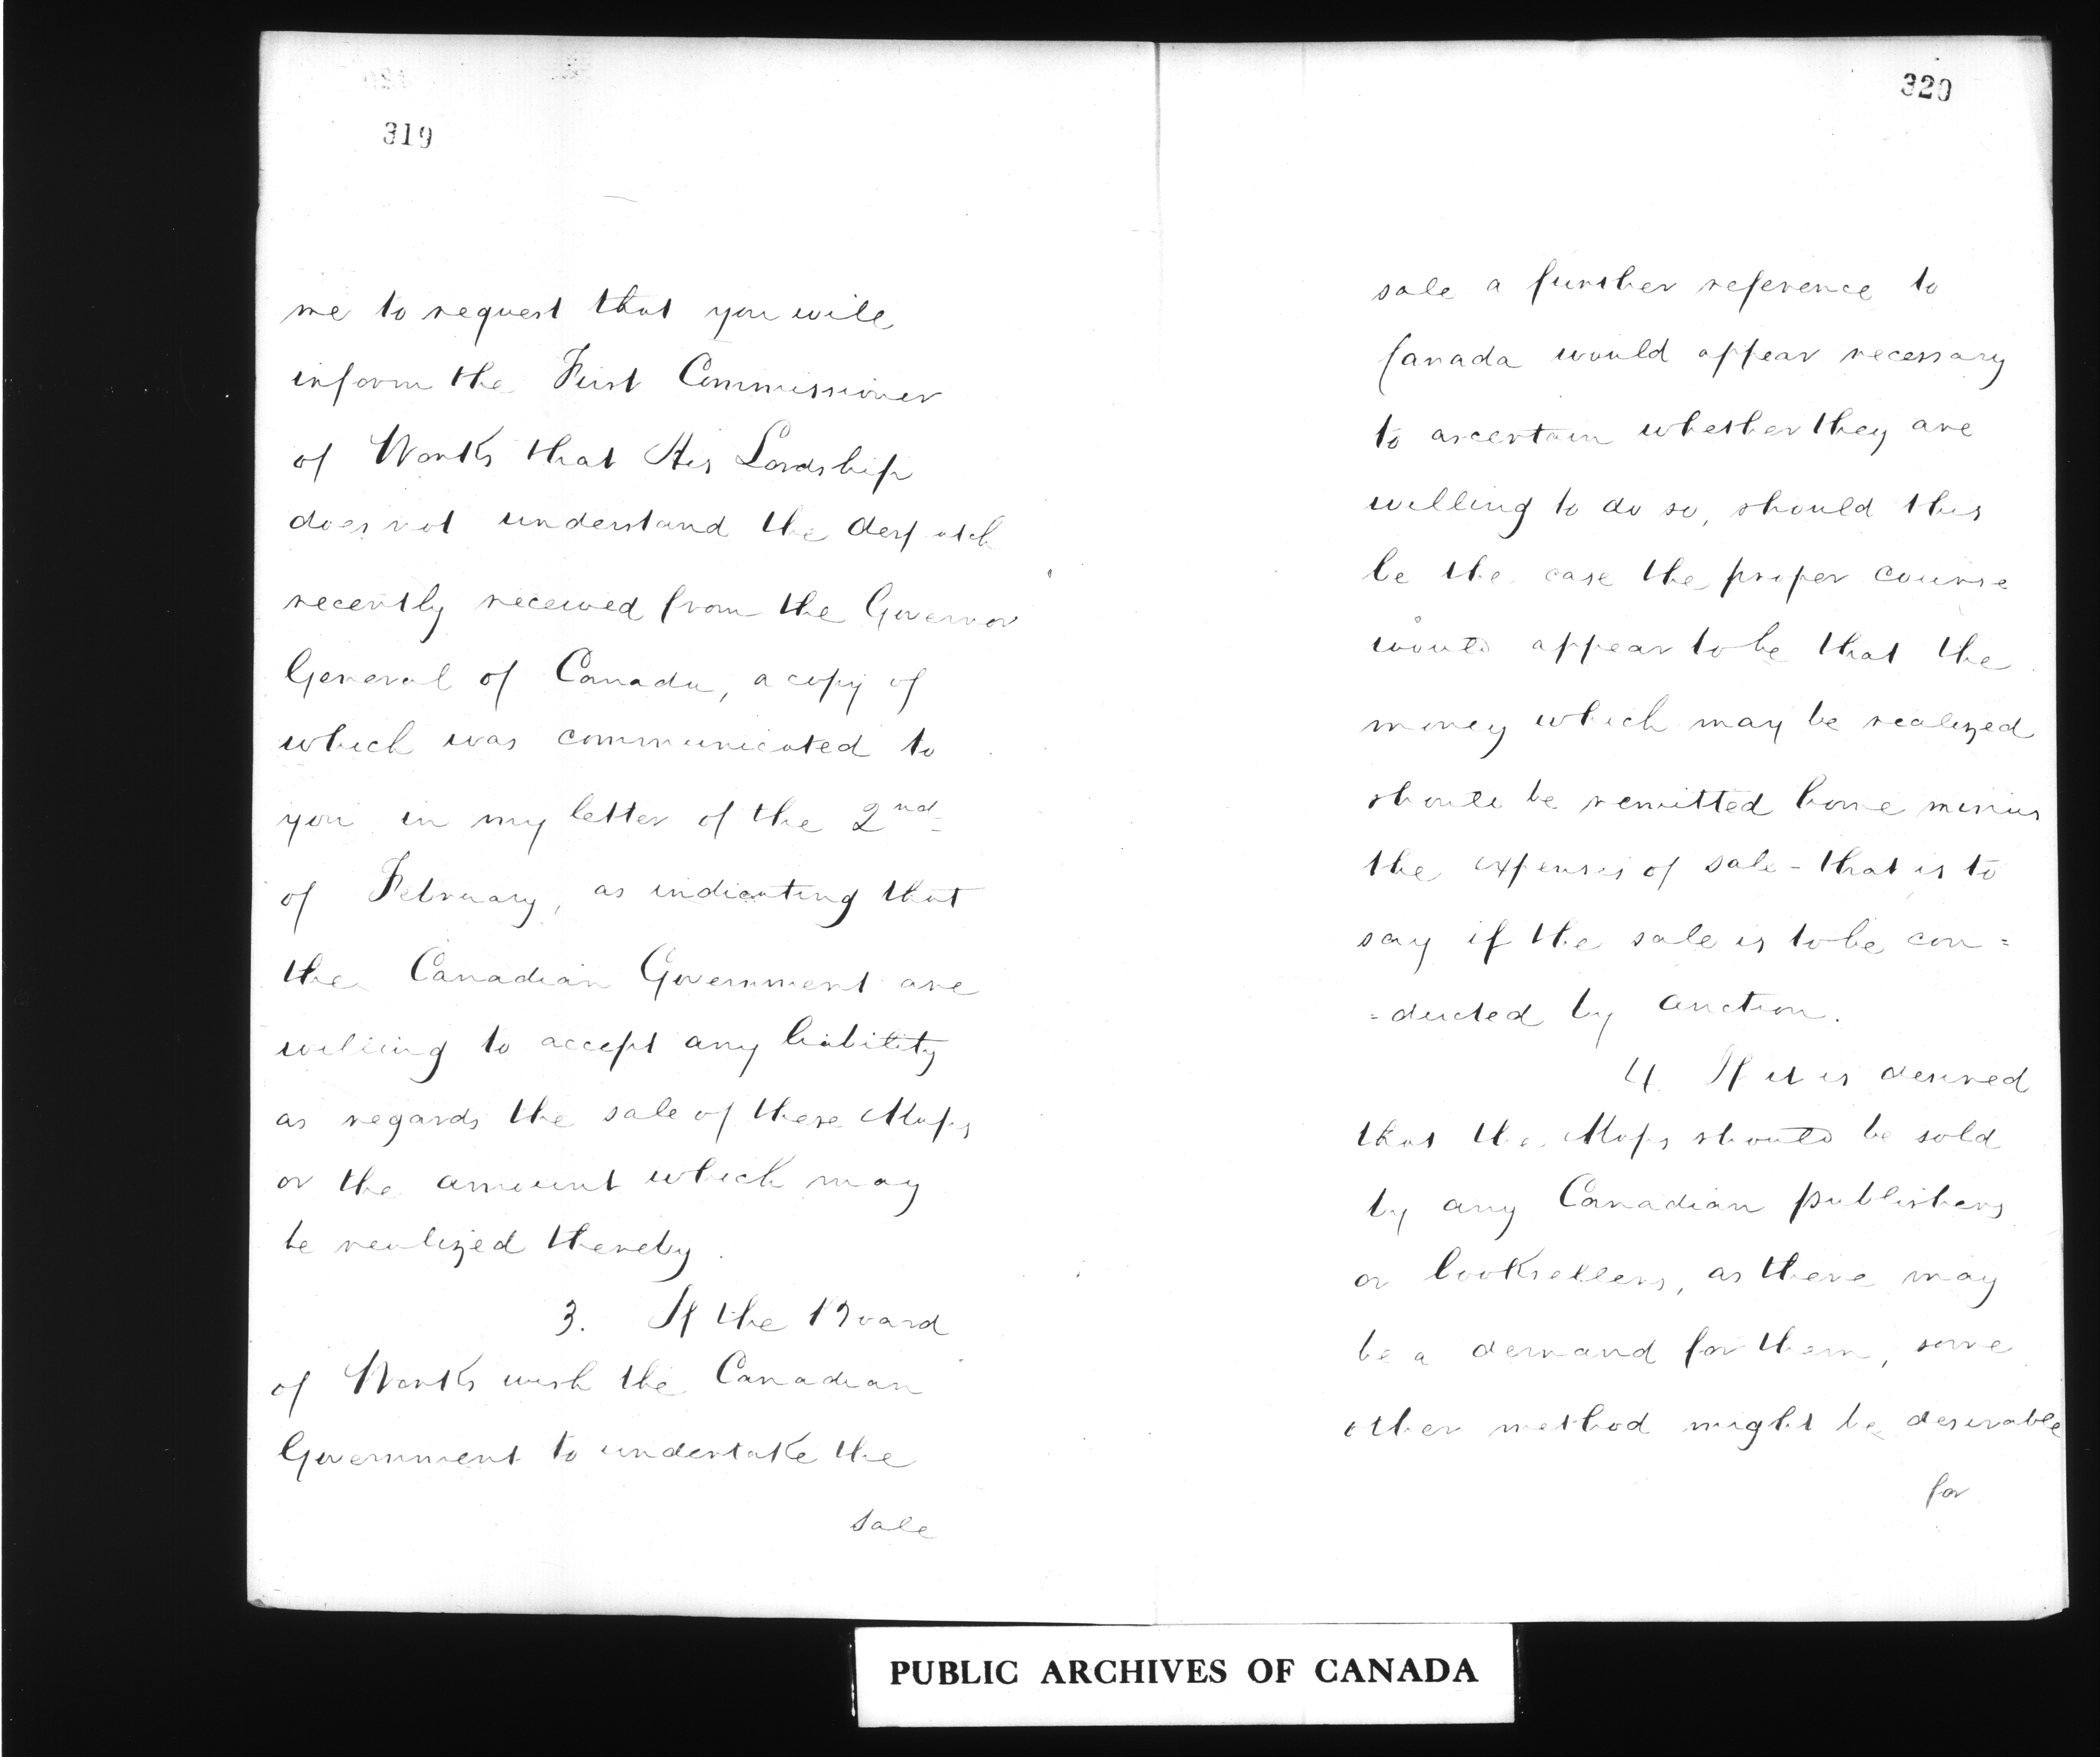 319
me to request that you will
inform the First Commissioner
of Works that His Lordship
does not understand the despatch
recently received from the Governor
General of Canada, a copy of
which was communicated to
you in my letter of the 2nd
of February, as indicating that
the Canadian Government are
willing to accept any liability
as regards the sale of these Maps
or the amount which may
be realized thereby.
3. If the Board
of Works wish the Canadian
Government to undertake the
sale
320
sale a further reference to
Canada would appear necessary
to ascertain whether they are
willing to do so, should this
be the case the proper course
would appear to be that the
money which may be realized
should be remitted home minus
the expenses of sale - that is to
say if the sale is to be con=
=ducted by auction.
4. If it is desired
that the Maps should be sold
by any Canadian publishers
or booksellers, as there may
be a demand for them, some
other method might be desirable
for
PUBLIC ARCHIVES OF CANADA